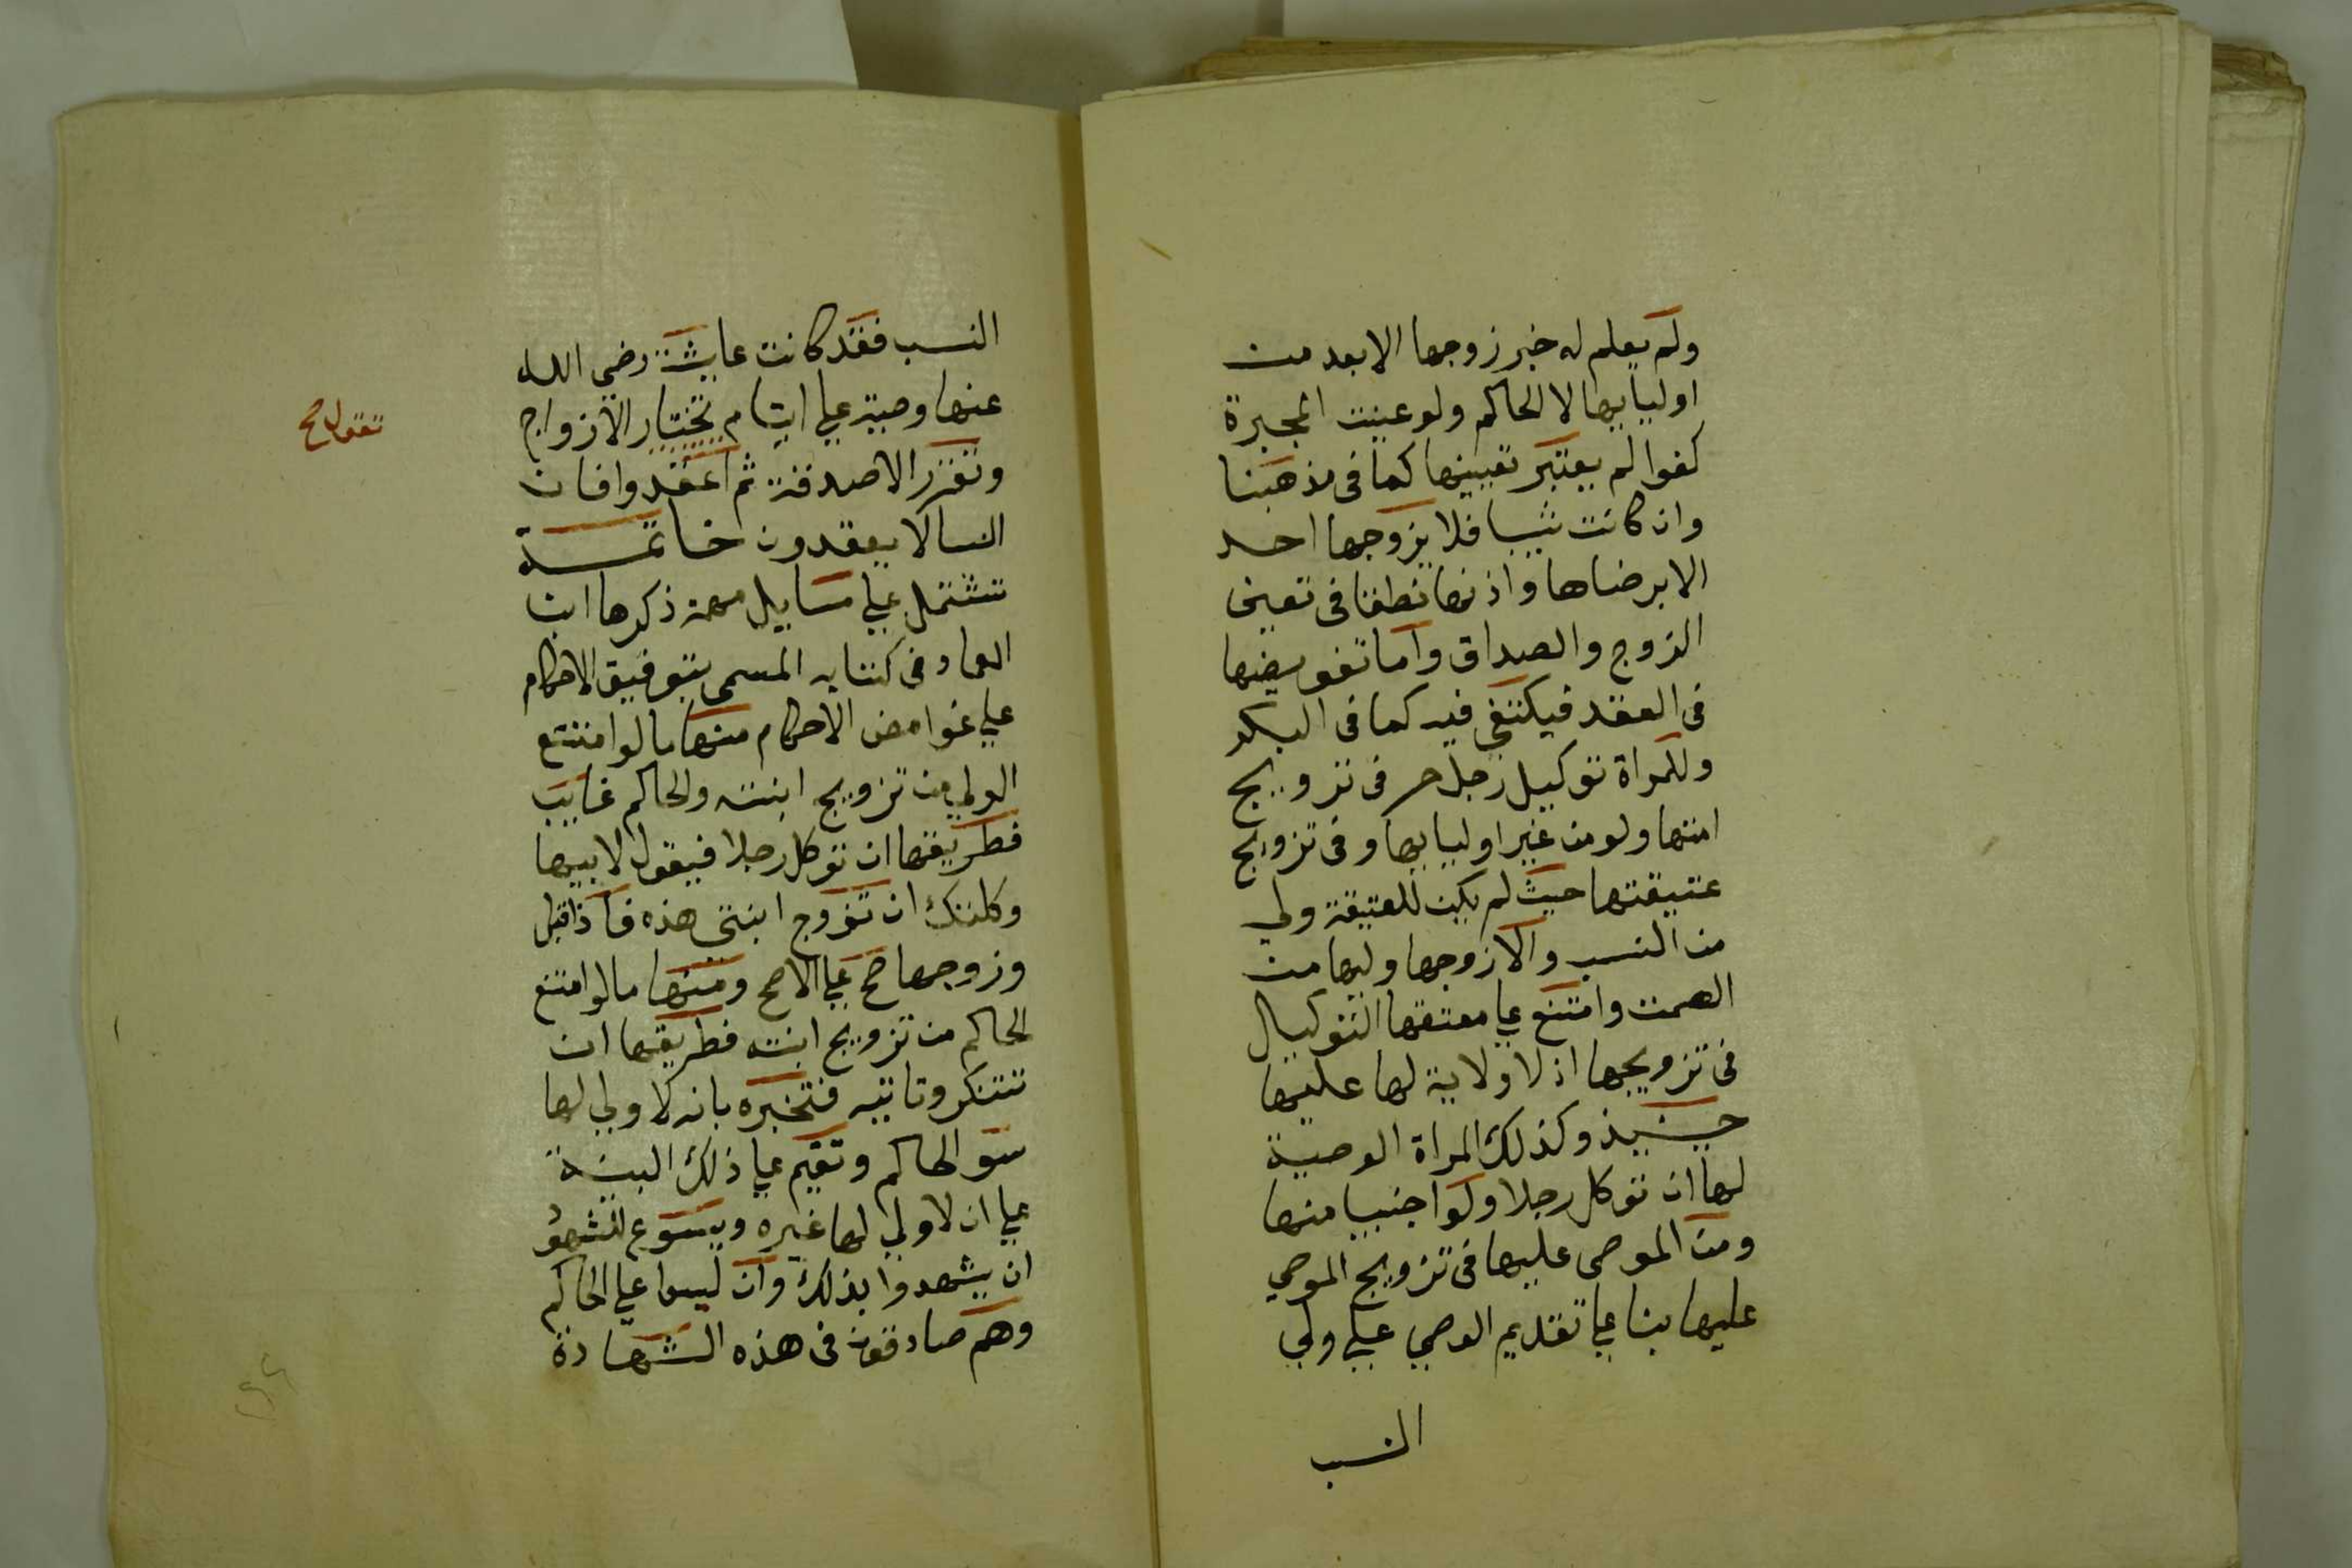 ولم يعلم له خبر زوجها الابعد من
اوليايها لا الحاكم ولو عينت المجبرة
كفوا لم يعتبر تعيينها كما فى مذهبنا
وان كانت ثيبا فلا يزوجها احد
الا برضاها واذنها نطقا فى تعين
الزوج والصداق واما تفويضها
فى العقد فيكتفي فيه كما فى البكر
وللمراة توكيل رجل حر فى تزويج
امتها ولو من غير اوليايها وفى تزويج
عتيقتها حيث لم يكن للعتيقة ولي
من النسب والا زوجها وليها من
الصمت وامتنع علي معتقها التوكيل
فى تزويجها اذ لا ولاية لها عليها
حينيذ وكذلك المراة الوصية
لها ان توكل رجلا ولو اجنبيا منها
ومن الموصى عليها فى تزويج الموصي
عليها بنا علي تقديم الوصي علي ولي
النسب
النسب فقد كانت عايشة رضي الله
عنها وصية علي ايتام تختار الازواج
وتقرر الاصدقة ثم اعقدوا فان
النسا لا يعقدون خاتمة
تشتمل علي مسايل مهمة ذكرها ابن
العماد فى كتابه المسمى بتوقيف الاحكام
علي غوامض الاحكام منها ما لو امتنع
الولي من تزويج ابنته والحاكم غايب
فطريقها ان توكل رجلا فيقول لابيها
وكلتك ان تزوج ابنتى هذه فاذا قبل
وزوجها صح علي الاصح ومنها ما لو امتنع
الحاكم من تزويج ابنته فطريقها ان
تتنكر وتاتيه فتخبره بانه لا ولي لها
سوا الحاكم وتقيم علي ذلك البينة
علي ان لا ولي لها غيره ويسوغ للشهود
ان يشهدوا بذلك وان ليسوا علي الحاكم
وهم صادقون فى هذه الشهادة
تقول صح